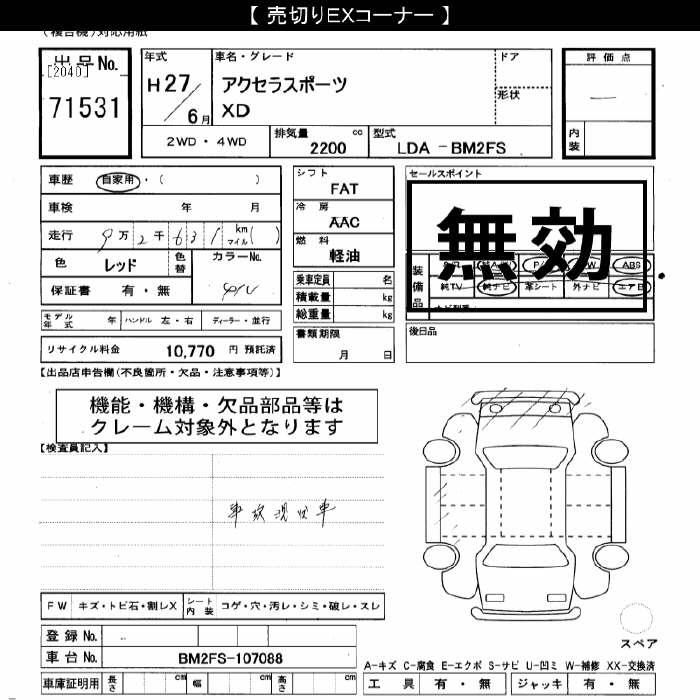 【 売切りEXコーナー 】
(複合機)対応用紙
出品No.
[2040]
71531
年式
H27/6月
車名・グレード
アクセラスポーツ
XD
ドア
形状
評価点
—
内装
2WD・4WD
排気量 cc
2200
型式
LDA-BM2FS
車歴 自家用・( )
車検 年 月
走行 9万2千631 km マイル( )
色 レッド 色替 カラーNo.
保証書 有・無
シフト
FAT
冷房
AAC
燃料
軽油
乗車定員 名
積載量 kg
総重量 kg
書類期限
月 日
セールスポイント
無効.
装備品 ABS
純TV 純ナビ 革シート 外ナビ エアB
後日品
モデル年式 年 ハンドル 左・右 ディーラー・並行
リサイクル料金 10,770 円 預託済
【出品店申告欄(不良箇所・欠品・注意事項等)】
機能・機構・欠品部品等は
クレーム対象外となります
【検査員記入】
事故現状車
FW キズ・トビ石・割レX シート内装 コゲ・穴・汚レ・シミ・破レ・スレ
登録No.
車台No. BM2FS-107088
車庫証明用 長さ cm 幅 cm 高さ cm
スペア
A-キズ C-腐食 E-エクボ S-サビ U-凹ミ W-補修 XX-交換済
工具 有・無 ジャッキ 有・無